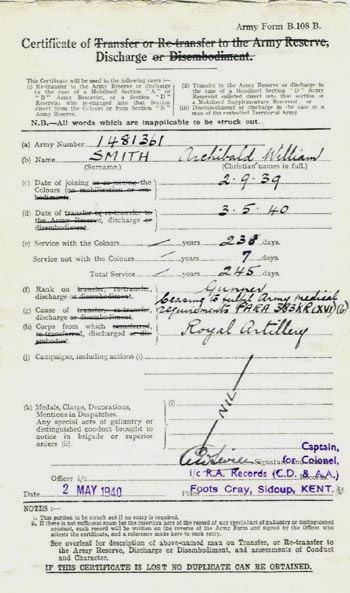 Army Form B.108 B.
Certificate of Transfer or Re-transfer to the Army Reserve,
Discharge or Disembodiment.
This Certificate will be used in the following cases:—
(i) Re-transfer to the Army Reserve or discharge in the case of a Mobilized Section "A" or "B" Army Reservist, or a Section "D" Reservist who re-engaged into that Section direct from the Colours or from Section "B" Army Reserve.
(ii) Transfer to the Army Reserve or discharge in the case of a Mobilized Section "D" Army Reservist enlisted direct into that section or a Mobilized Supplementary Reservist or
(iii) Disembodiment or discharge in the case of a man of the embodied Territorial Army
N.B.—All words which are inapplicable to be struck out.
(a) Army Number 1481361
(b) Name SMITH Archibald William
(Surname.) (Christian names in full.)
(c) Date of joining or re-joining the
Colours (on mobilization or embodiment) 2·9·39
(d) Date of transfer or re-transfer to
the Army Reserve, discharge or
disembodiment. 3·5·40
(e) Service with the Colours — years 238 days.
Service not with the Colours — years 7 days.
Total Service — years 245 days.
(f) Rank on transfer, re-transfer,
discharge or disembodiment. Gunner
(g) Cause of transfer, re-transfer,
discharge or disembodiment. Ceasing to fulfil Army medical
requirements PARA 383 KR (XVI) (b)
(h) Corps from which transferred,
re-transferred, discharged or disembodied Royal Artillery
(j) Campaigns, including actions (i)
(k) Medals, Clasps, Decorations,
Mentions in Despatches.
Any special acts of gallantry or
distinguished conduct brought to
notice in brigade or superior
orders (ii).
(i)
NIL
Captain,
Signature
for Colonel,
Officer i/c
I/c R.A. Records (C.D. & A.A.)
Date 2 MAY 1940 Place Foots Cray, Sidcup, KENT.
NOTES:—
i. This portion to be struck out if no entry is required.
ii. If there is not sufficient room for the insertion here of the record of any special act of gallantry or distinguished conduct, such record will be written on the reverse of the Army Form and signed by the Officer who attests the certificate, and a reference made here to such record.
See overleaf for description of above-named man on Transfer, or Re-transfer to
the Army Reserve, Discharge or Disembodiment, and assessments of Conduct
and Character.
IF THIS CERTIFICATE IS LOST NO DUPLICATE CAN BE OBTAINED.